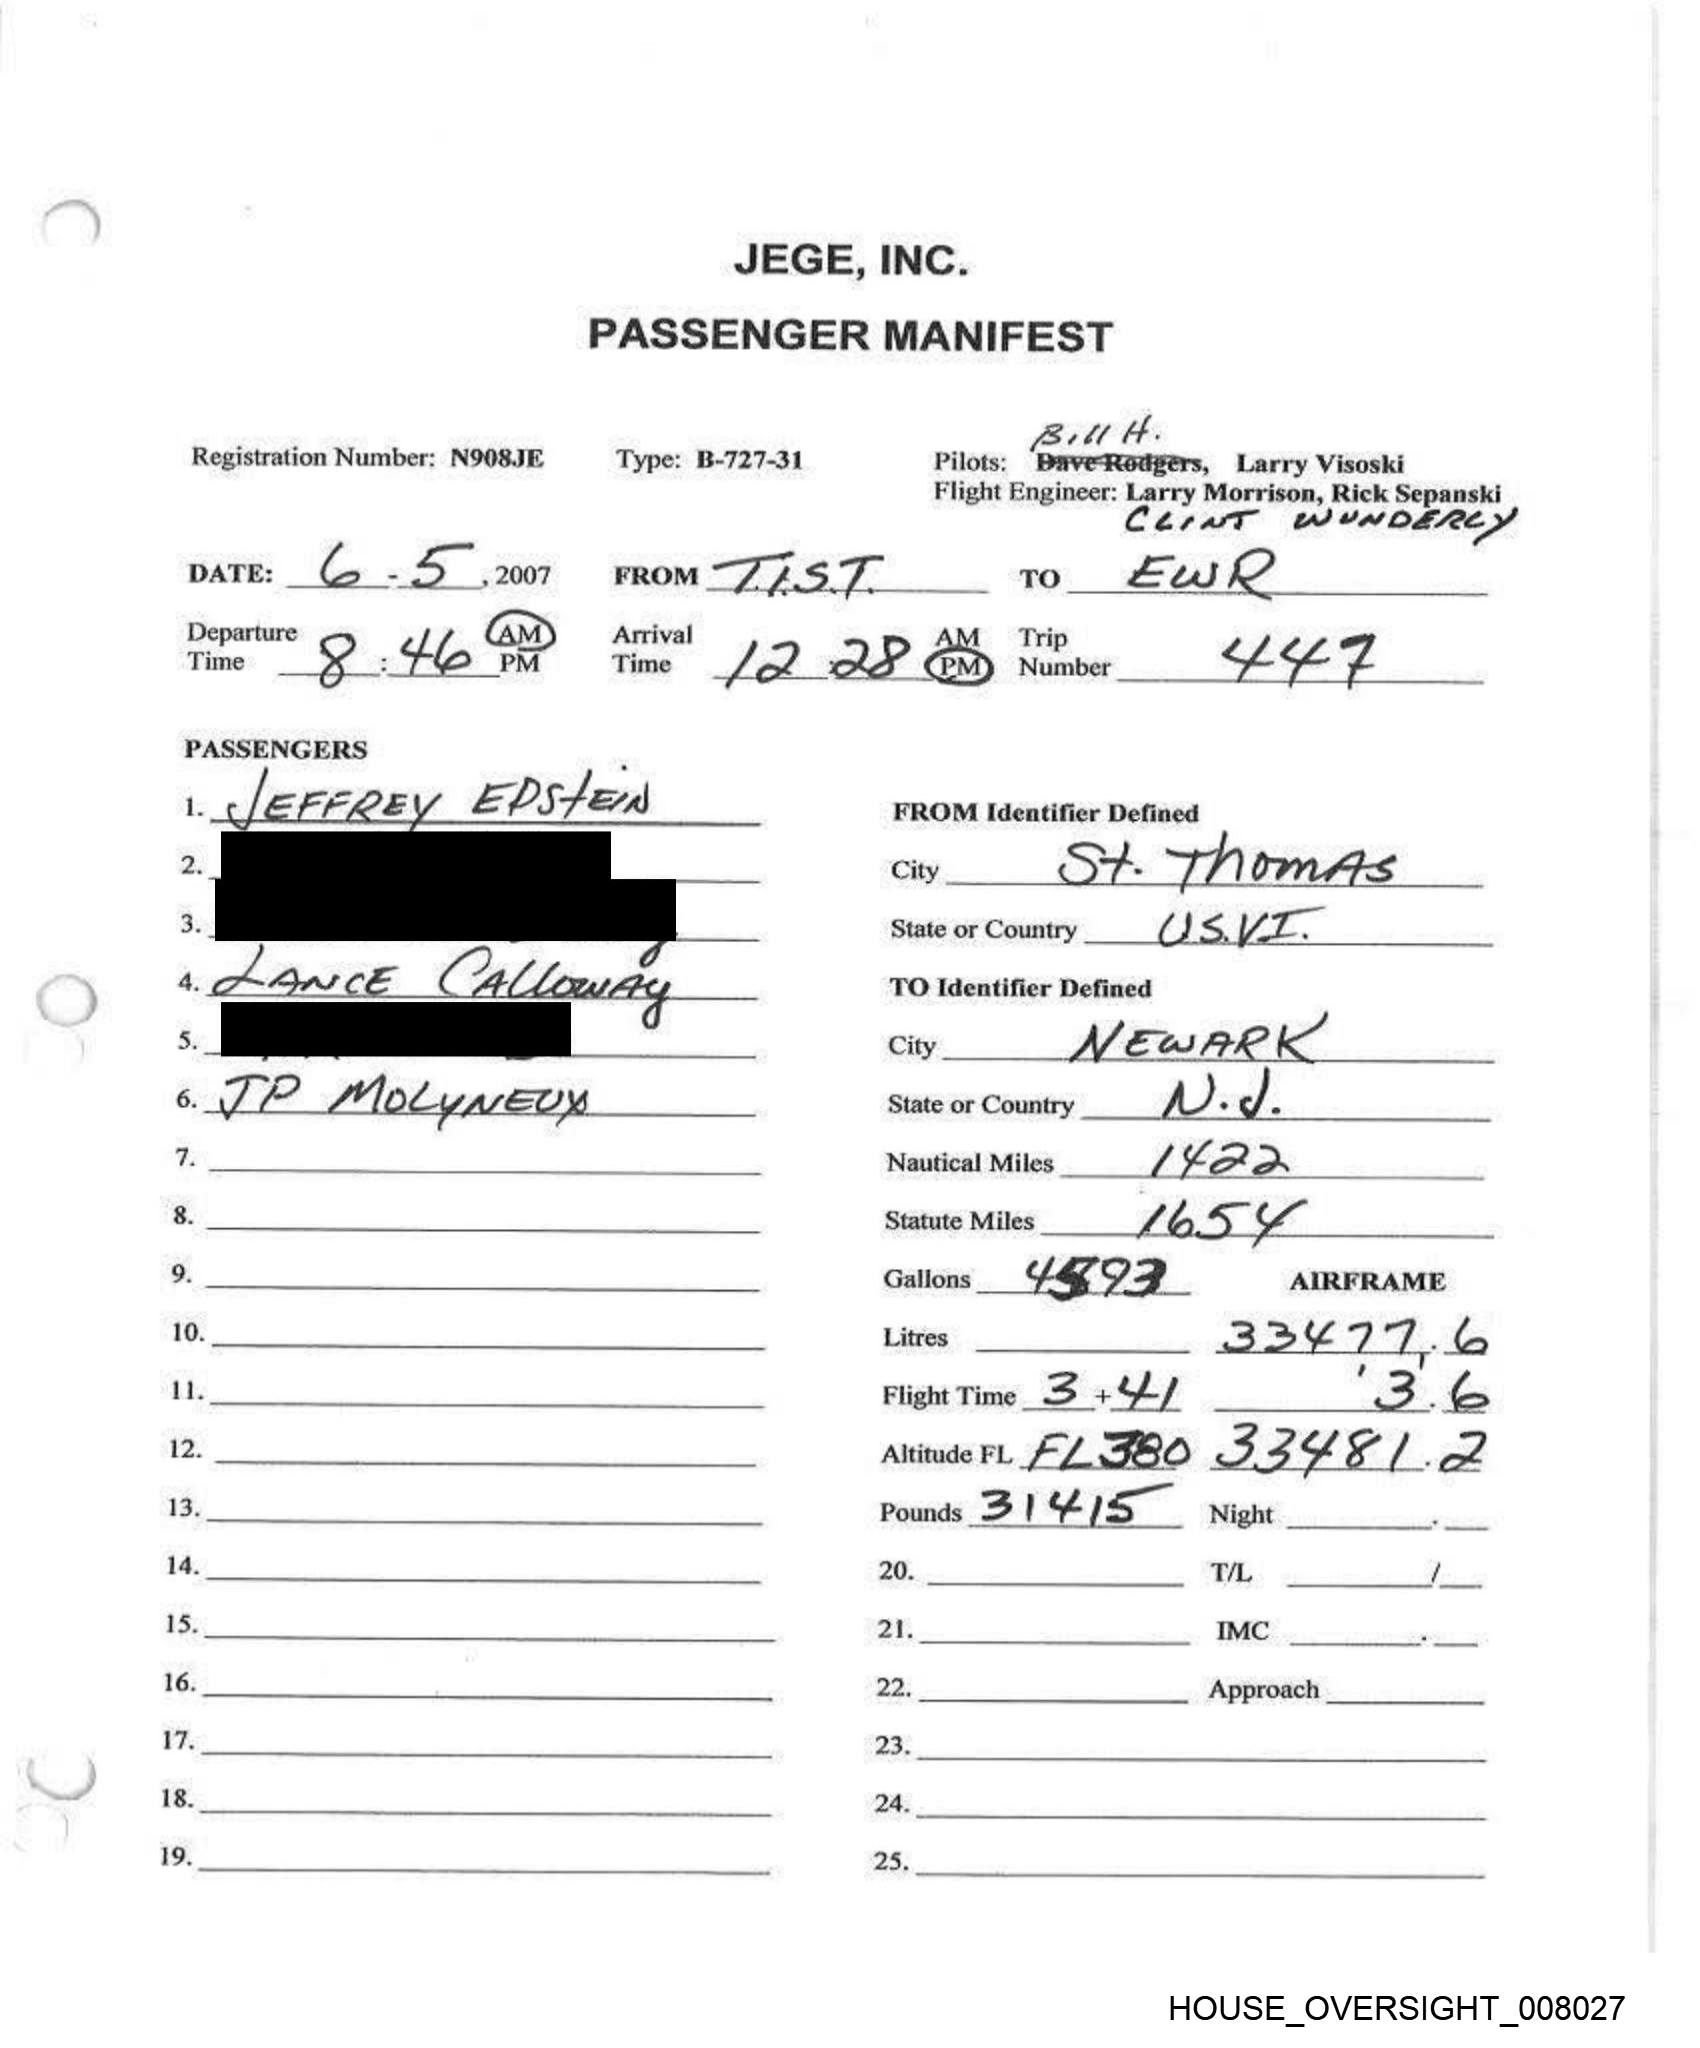 JEGE, INC.
PASSENGER MANIFEST
Bill H.
Registration Number: N908JE Type: B-727-31 Pilots: Dave Rodgers, Larry Visoski
Flight Engineer: Larry Morrison, Rick Sepanski
CLINT WUNDERLY
DATE: 6-5, 2007 FROM T.I.S.T. TO EWR
Departure Time 8:46 AM PM Arrival Time 12:28 AM PM Trip Number 447
PASSENGERS
1. JEFFREY EPStEIN
2.
3.
4. LANCE CAlloWAy
5.
6. JP MOLYNEUX
7.
8.
9.
10.
11.
12.
13.
14.
15.
16.
17.
18.
19.
FROM Identifier Defined
City St. ThomAs
State or Country U.S.V.I.
TO Identifier Defined
City NEWARK
State or Country N.J.
Nautical Miles 1422
Statute Miles 1654
Gallons AIRFRAME
Litres 33477.6
Flight Time 3 + 41 3.6
Altitude FL FL380 33481.2
Pounds 31415 Night .
20. T/L /
21. IMC .
22. Approach
23.
24.
25.
HOUSE_OVERSIGHT_008027